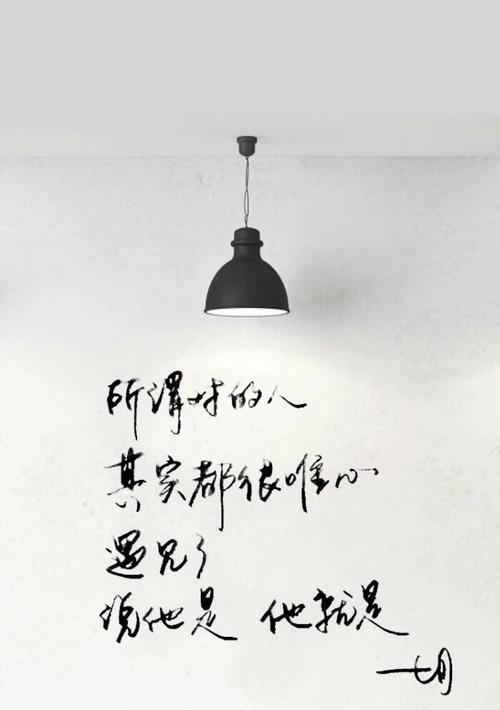 所谓对的人
其实都很唯心
遇见了
说他是 他就是
七月